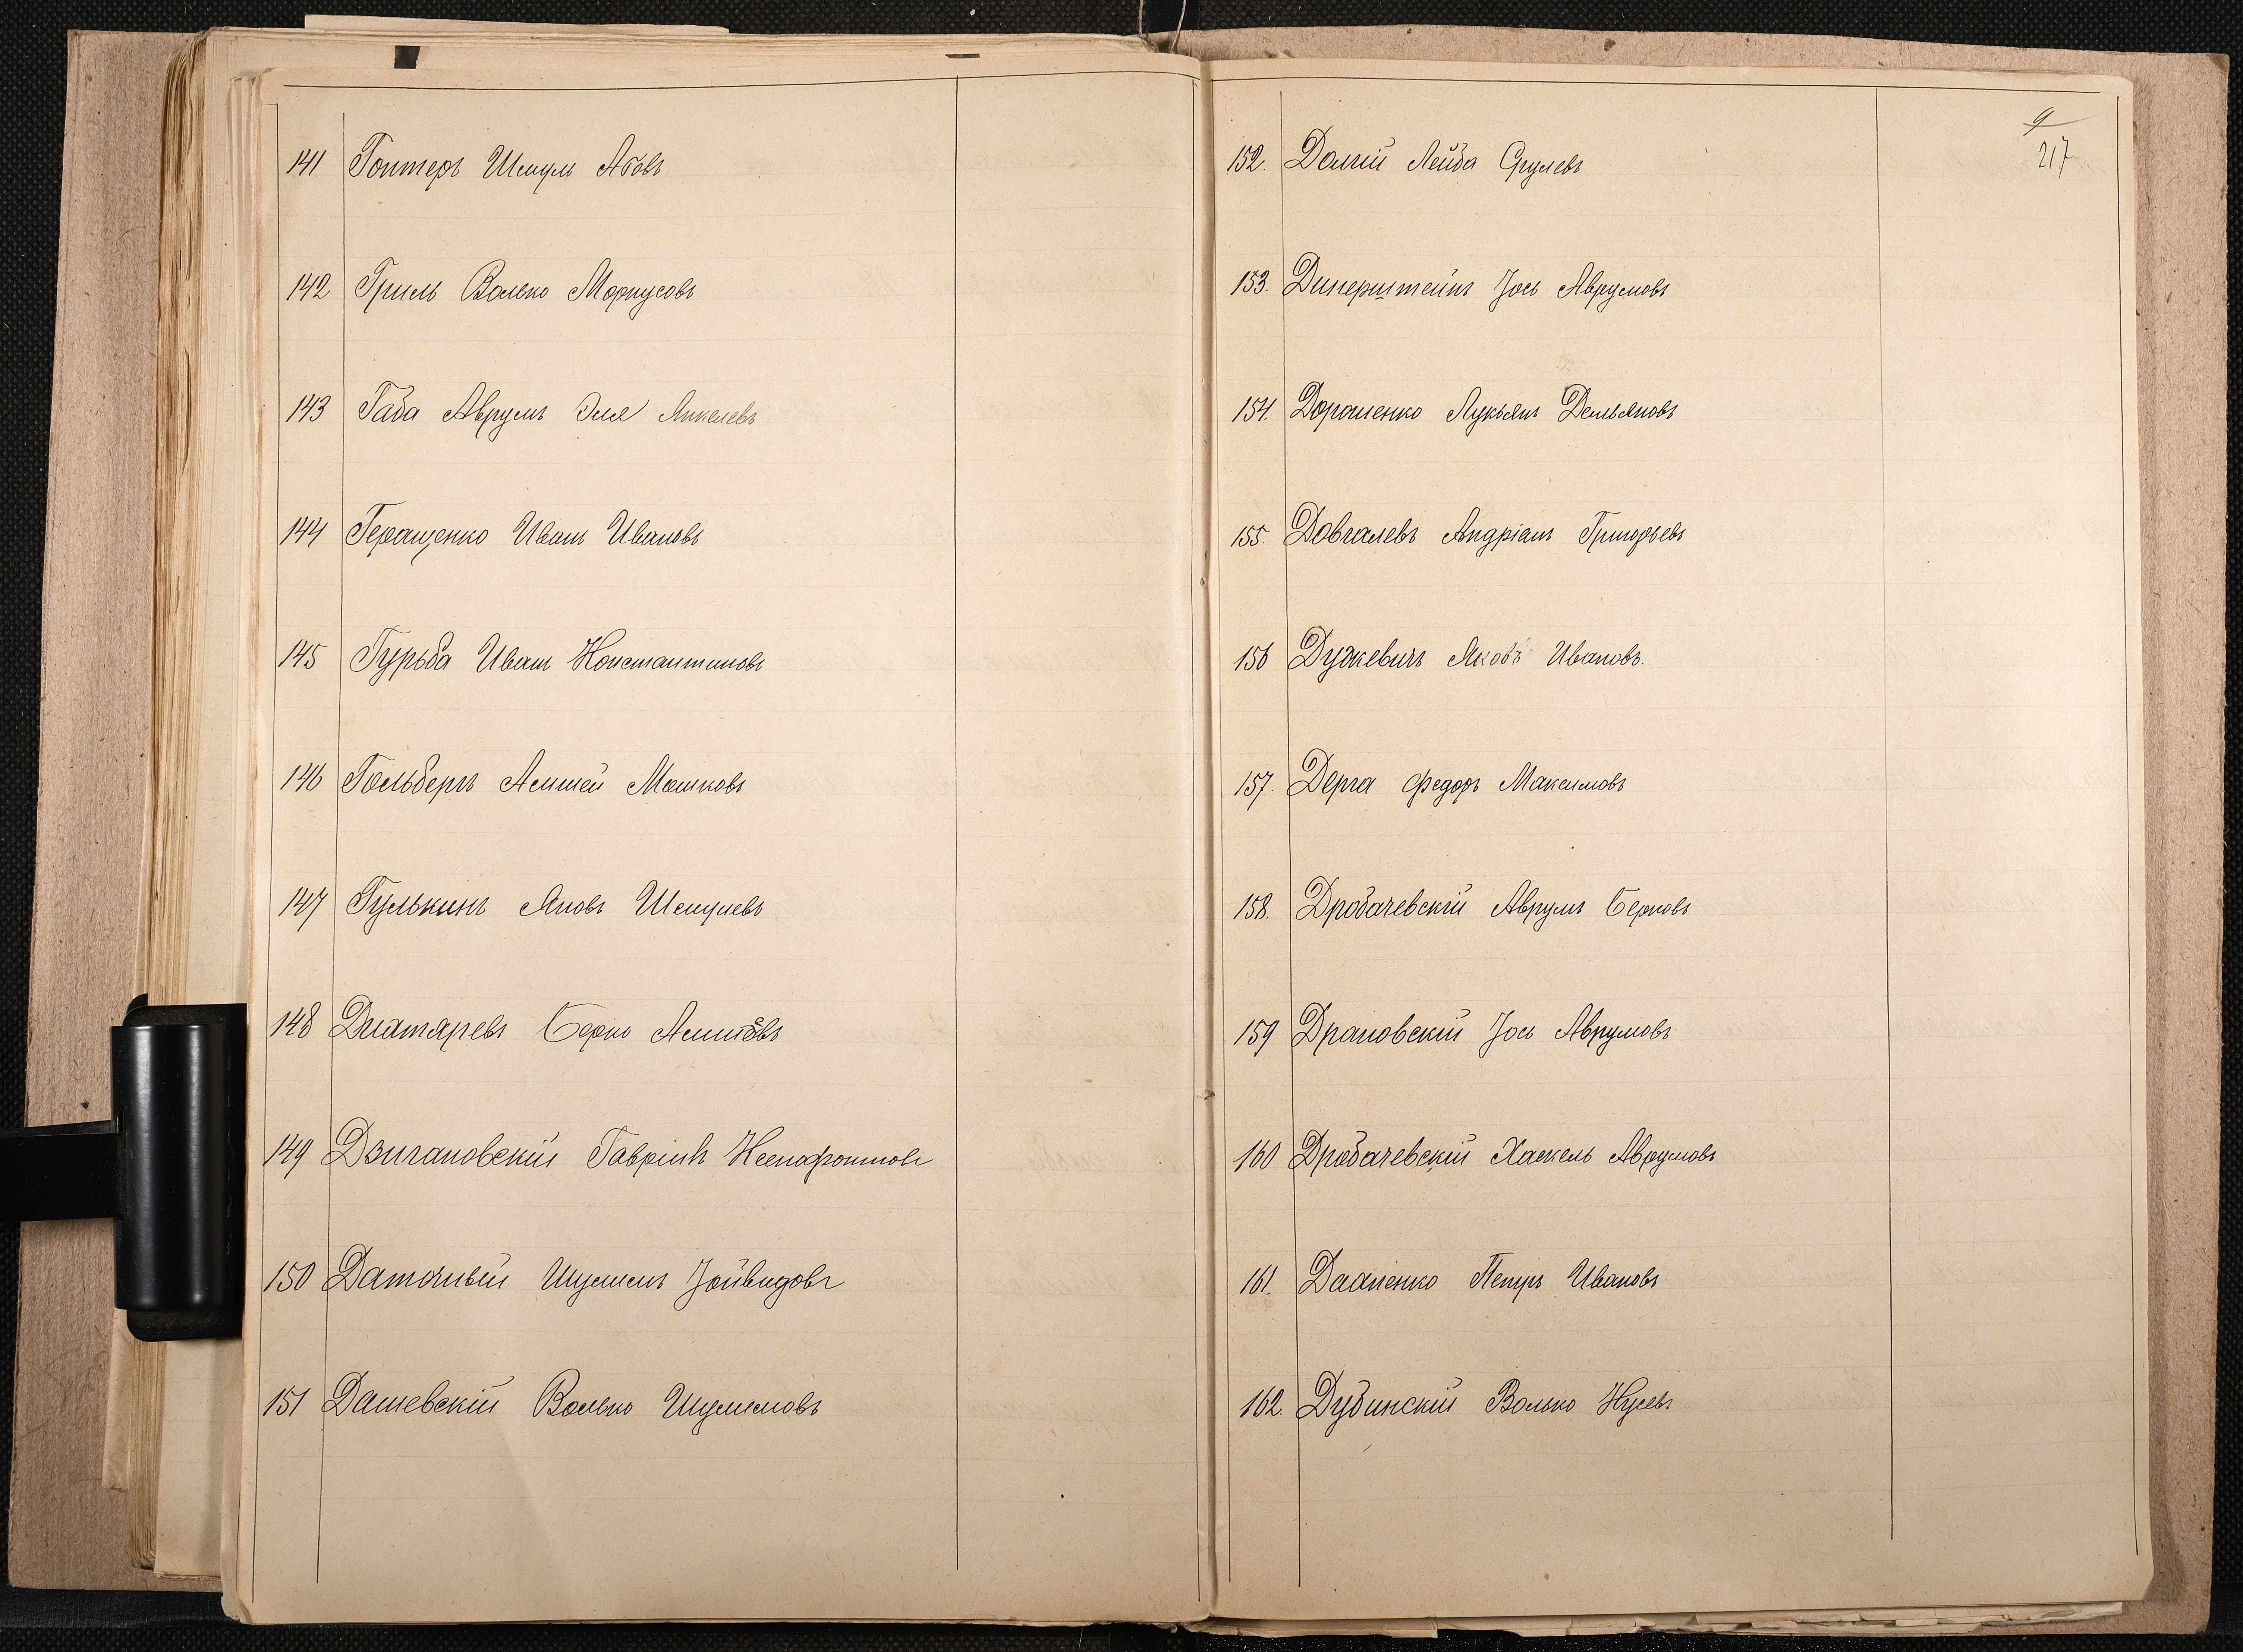 141 Гонтеръ Шмуль Абовъ
142 Гриль Волько Моркусовъ
143 Габа Аврумъ Эля Янкелевъ
144 Геращенко Иванъ Ивановъ
145 Гурьба Иванъ Константиновъ
146 Гольберъ Мошковъ
147 Гулькинъ Яновъ Шмулевъ
148 Берко
149 Дзигановскій Гавріилъ Ксенофонтовъ
150 Даточный Шулимъ
151 Дашевскій Волько Шулимовъ
9
217
152. Долгій Лейба Срулевъ
153. Динерштейнъ Іось Аврумовъ
154. Дорошенко Лукьянъ Демьяновъ
155. Довгалевъ Андріанъ Григорьевъ
156 Дужкевичъ Яковъ Ивановъ.
157. Дерга Федоръ Максимовъ
158. Дробачевскій Аврумъ Берковъ
159 Драновскій Іось Аврумовъ
160 Дробачевскій Хаскель Аврумовъ
161. Петръ Ивановъ
162. Дубинскій Волько Нусевъ